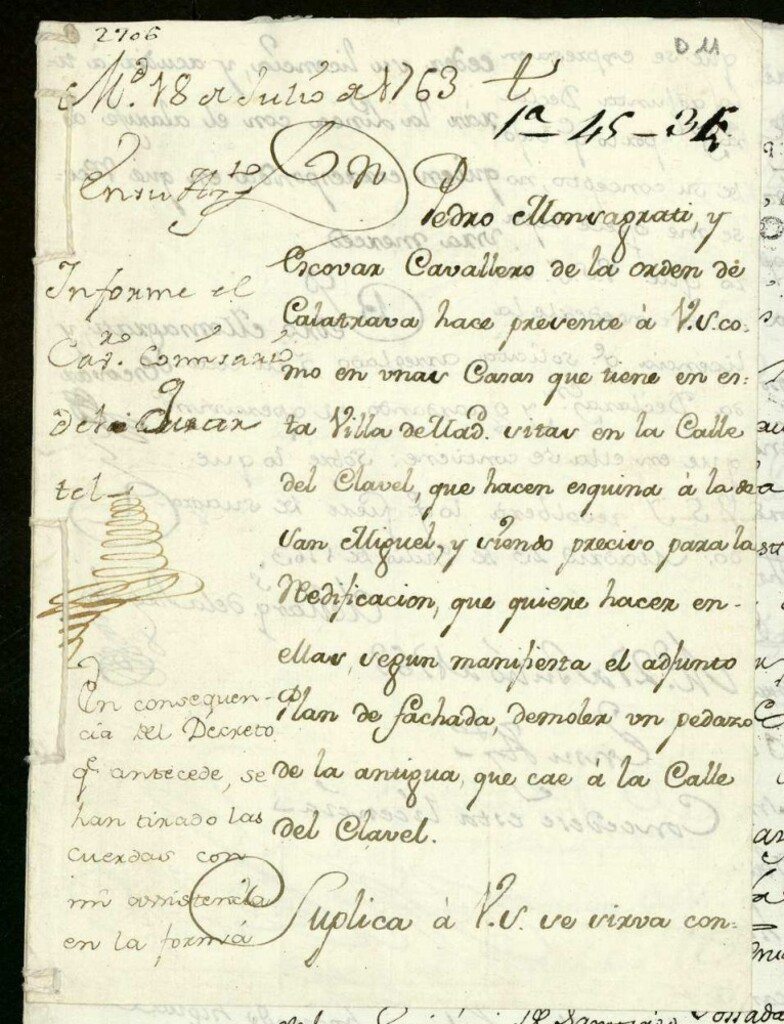 2706
D 11
Md. 18 de Julio de 1763
1a - 45 - 35
En su Ayto
Informe el
Cavro. Comisario
del Quar
tel
Dn Pedro Monsagrati, y
Escovar Cavallero de la orden de
Calatrava hace presente â V.S. co-
mo en unas Casas que tiene en es-
ta Villa de Mad. sitas en la Calle
del Clavel, que hacen esquina â la de
San Miguel, y siendo preciso para la
Redificacion, que quiere hacer en-
ellas, segun manifiesta el adjunto
Plan de fachada, demoler un pedazo
de la antigua, que cae â la Calle
del Clavel.
Suplica â V.S. se sirva con-
En consequen-
cia del Decreto
qe antecede, se
han tirado las
cuerdas con
mi assistencia
en la forma